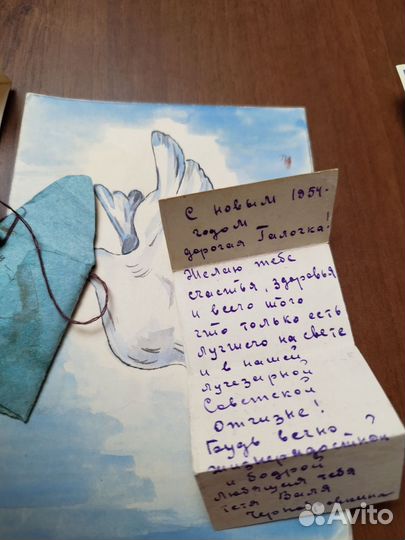 С новым 1954-
годом
дорогая Галочка!
Желаю тебе
счастья, здоровья
и всего того
что только есть
лучшего на свете
и в нашей
лучезарной
Советской
Отчизне!
Будь вечно
жизнерадостной
и бодрой
любящая тебя
тетя Валя
Avito